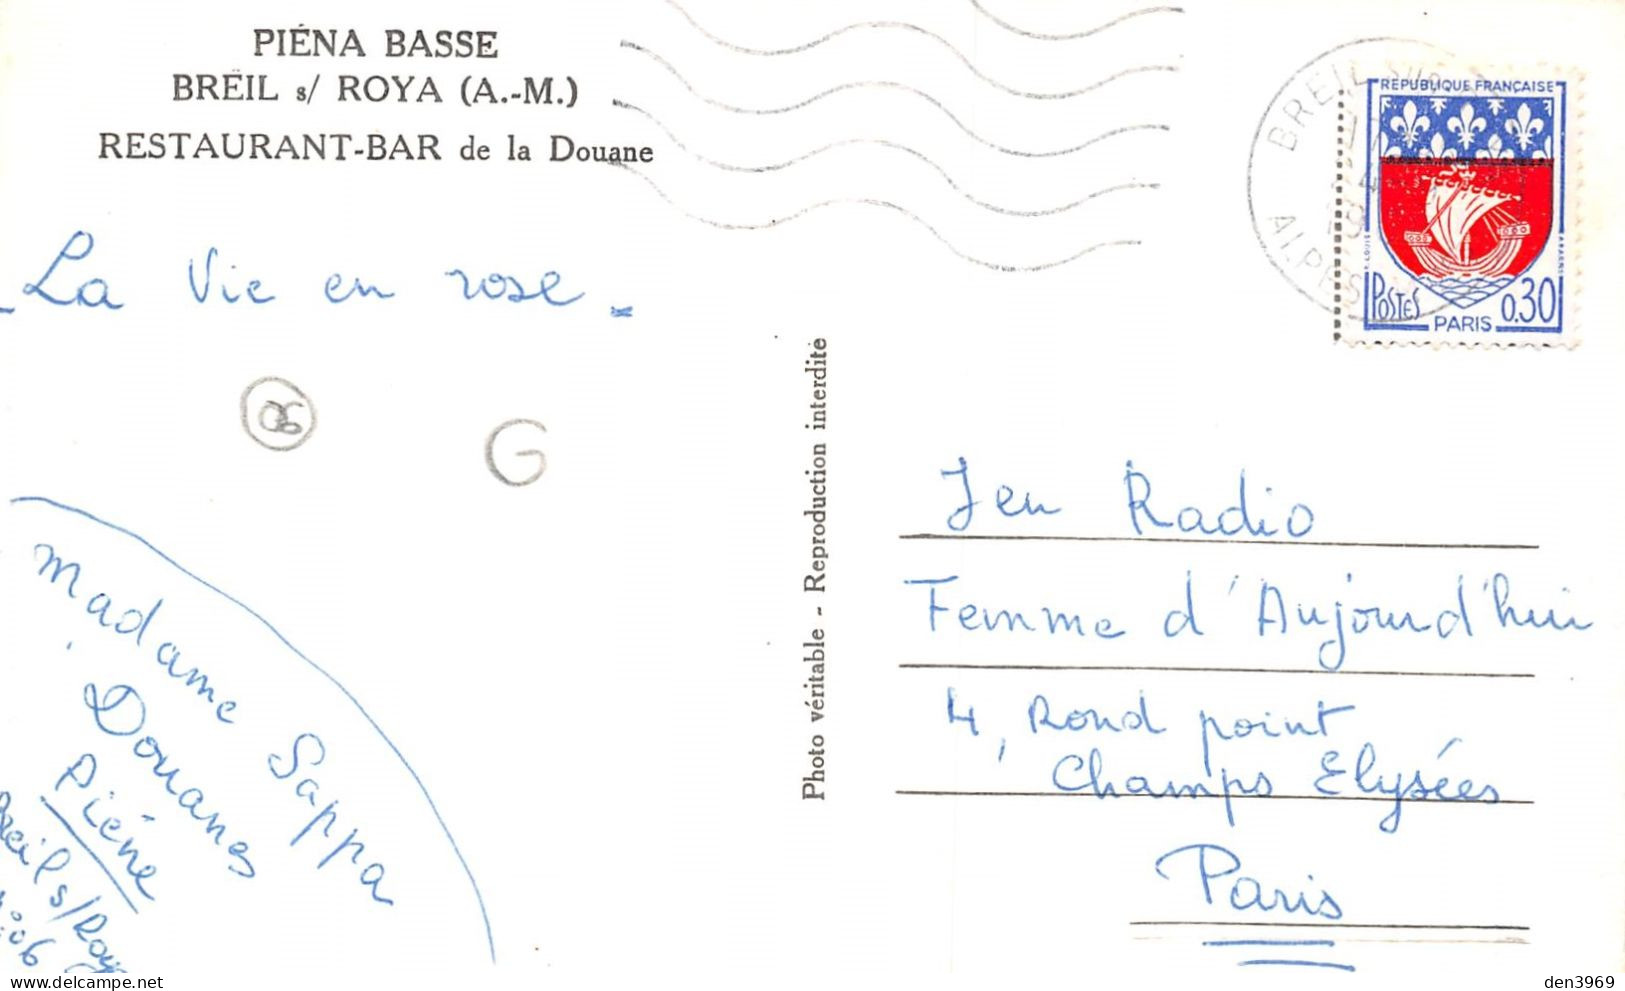 PIÉNA BASSE
BREÏL s/ ROYA (A.-M.)
RESTAURANT-BAR de la Douane
- La Vie en rose -
06
G
Madame Sappa
Douanes
Piéne
Breil s/Roya
06
Photo véritable - Reproduction interdite
BREIL SUR
ALPES
REPUBLIQUE FRANÇAISE
POSTES
PARIS
0,30
Jeu Radio
Femme d'Aujourd'hui
4, Rond point
Champs Elysées
Paris
den3969